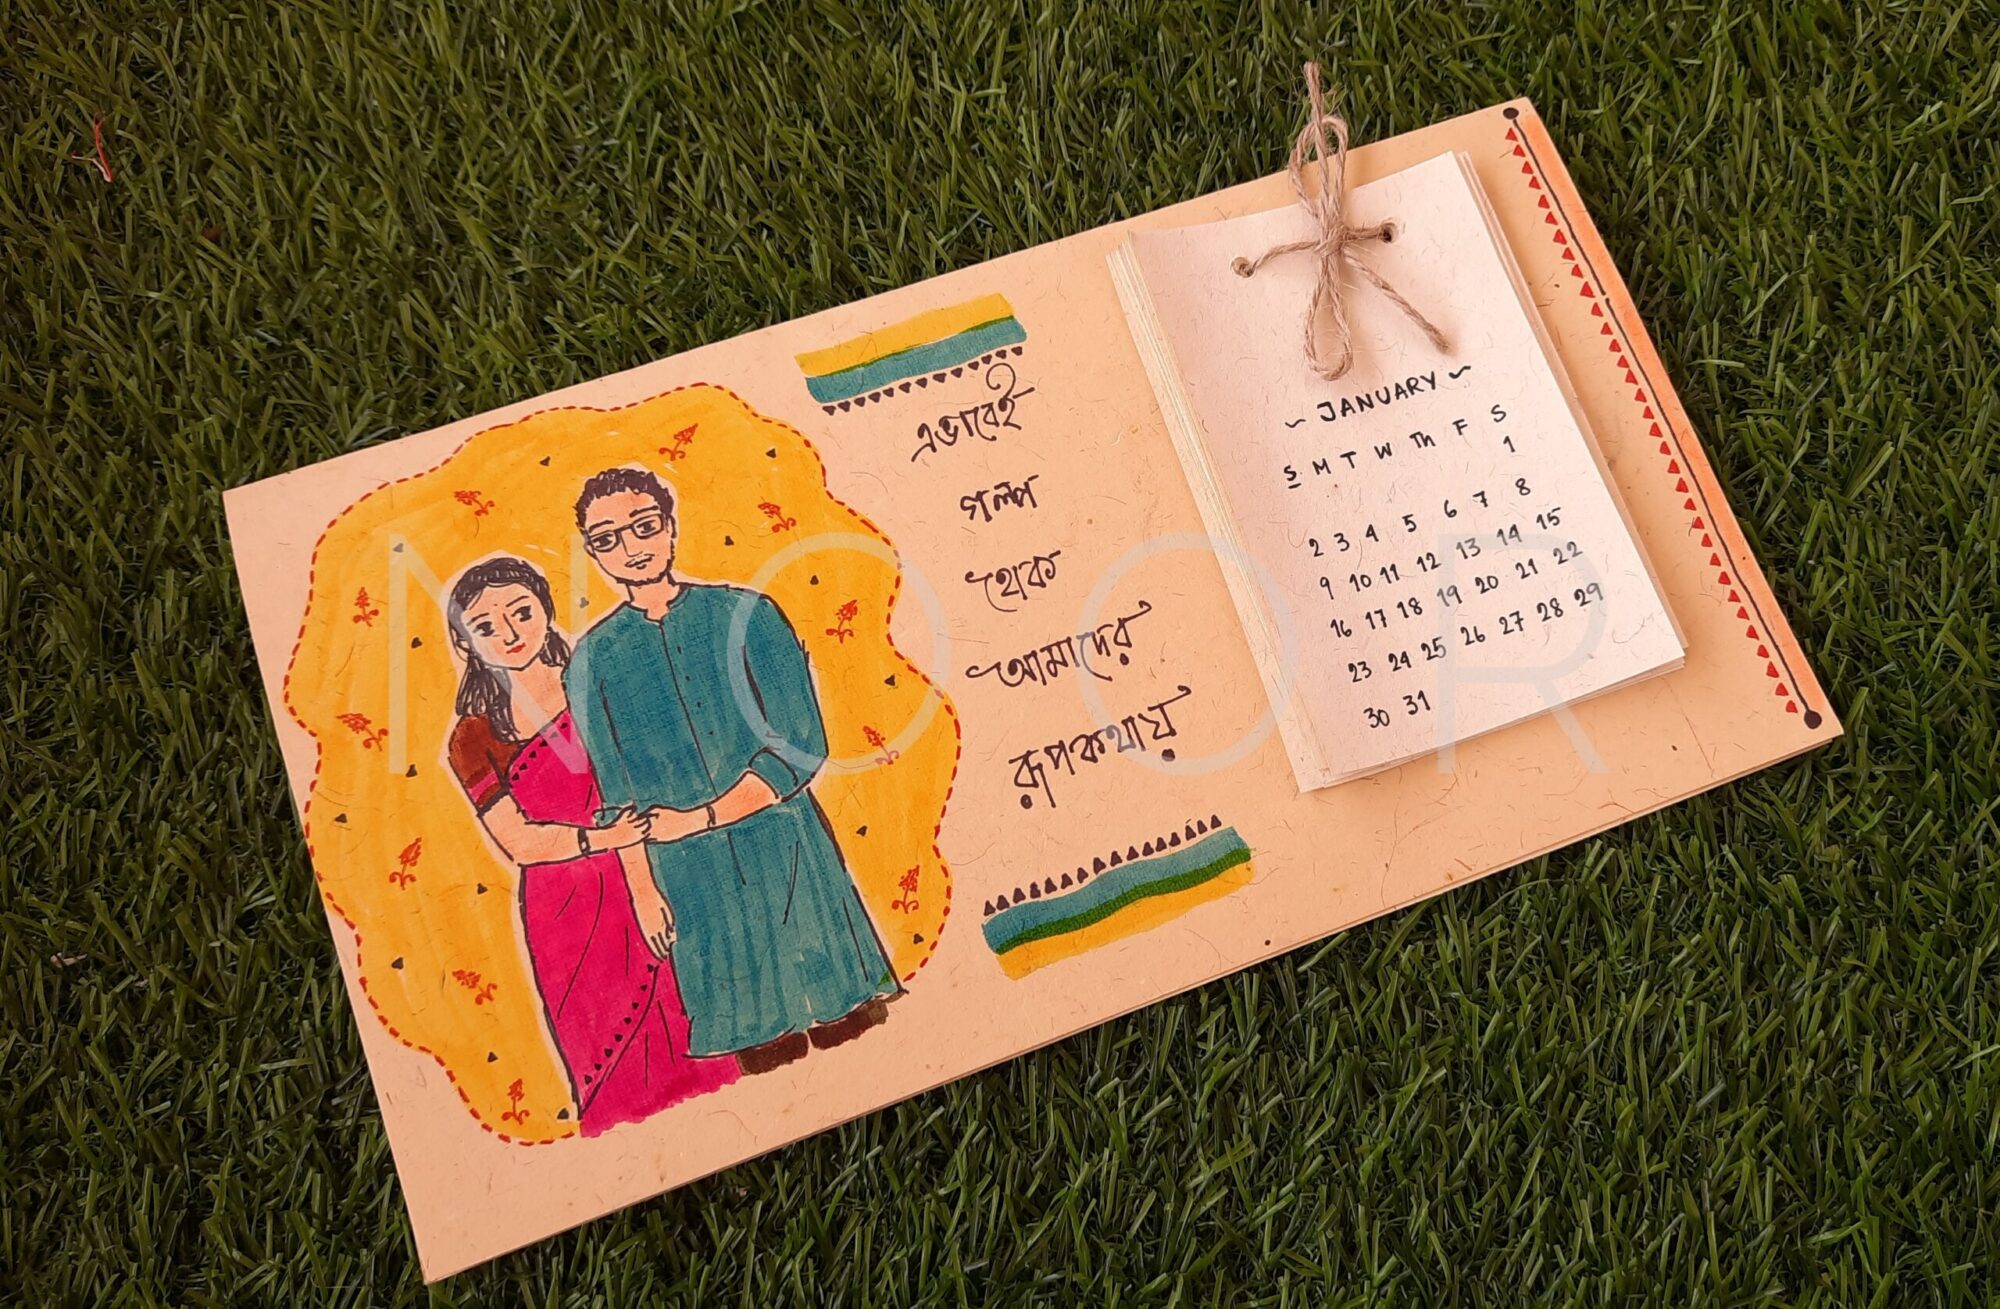 এভাবেই
গল্প
থোক
আমাদের
রূপকথায়
~ JANUARY ~
S M T W Th F S
1
2 3 4 5 6 7 8
9 10 11 12 13 14 15
16 17 18 19 20 21 22
23 24 25 26 27 28 29
30 31
NOOR